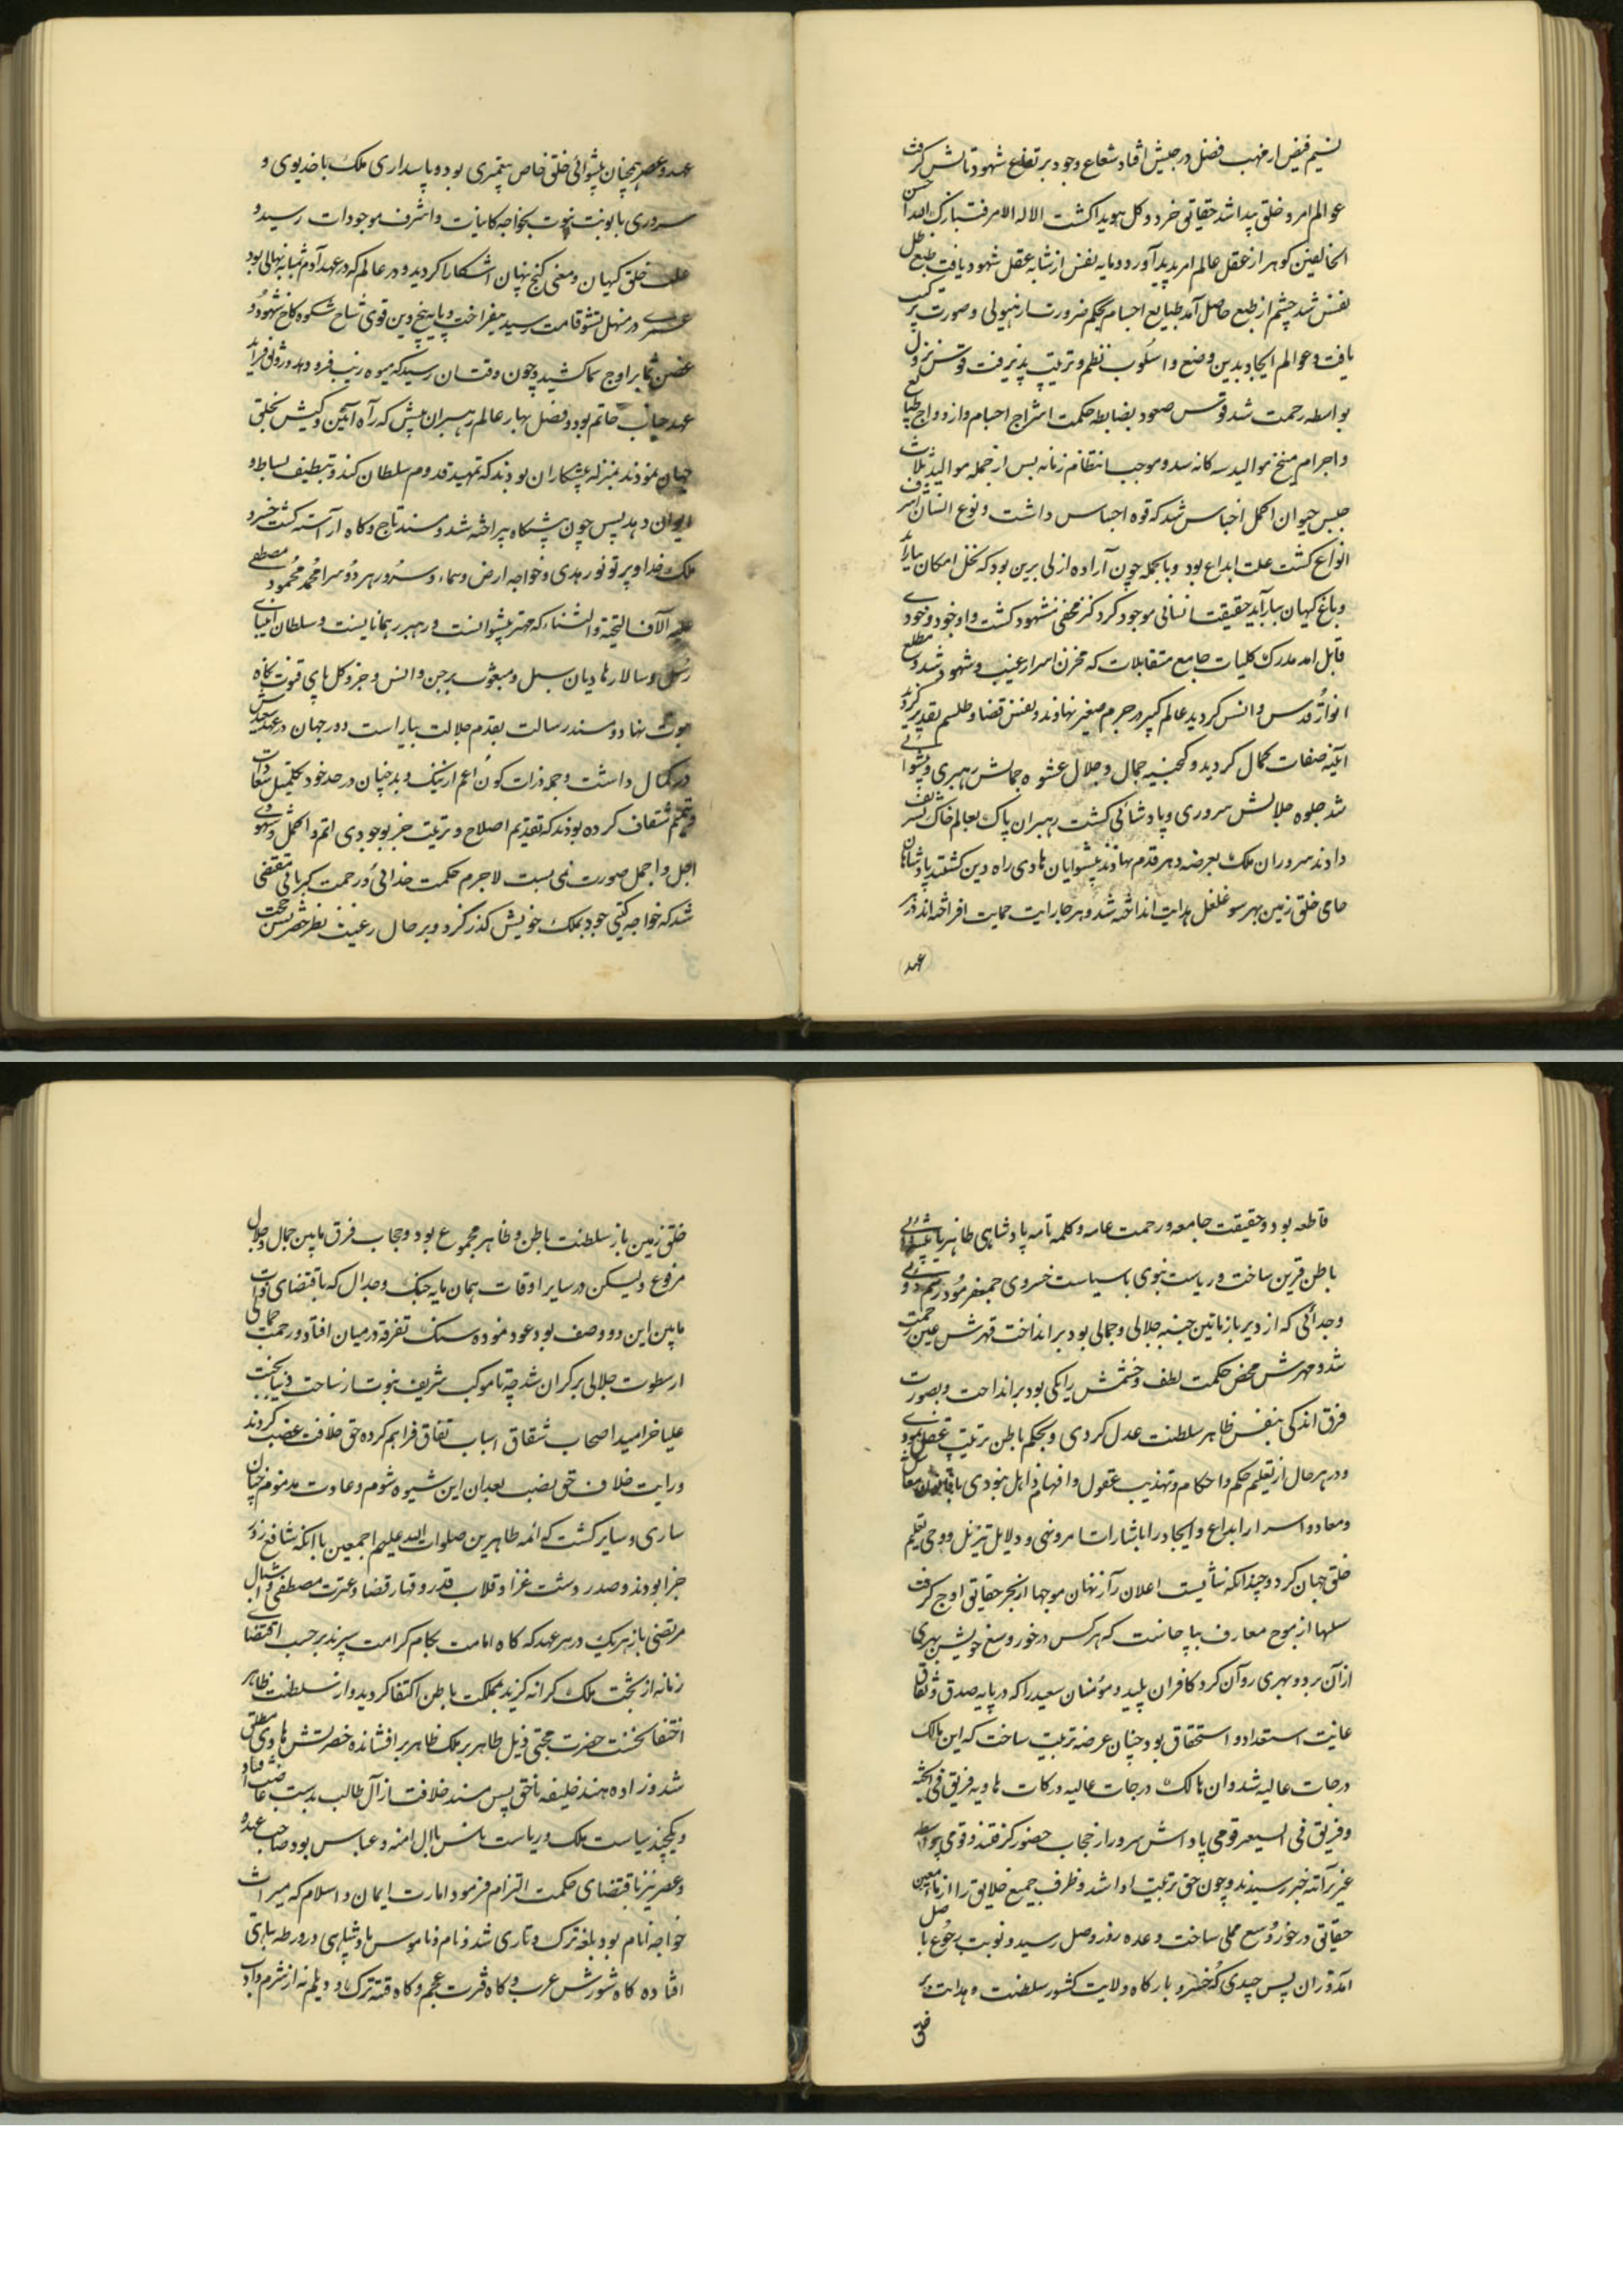 نسیم فیض از مهب فضل در جنبش افتاد شعاع وجود بر تقاطع شهود تابش گرفت
عوالم امر و خلق پیدا شد حقایق خرد و کل هویدا گشت الا له الامر فتبارک الله احسن
الخالقین گوهر از عقل عالم امر پدید آورد و مایه نفس از نشابه عقل شهود یافت طبع ظل
نفس شد چشم از طبع حاصل آمد طبایع اجسام بحکم ضرورت از هیولی و صورت ترکیب
یافت و عوالم ایجاد بدین وضع و اسلوب نظم و ترتیب پذیرفت قوس نزول
بواسطه رحمت شد قوس صعود بضابطه حکمت امتزاج اجسام و ازدواج طبایع
و اجرام منتج موالید سه کانه شد و موجب انتظام زمانه پس از جمله موالید ثلاث
جنس حیوان اکمل اجناس شد که قوه احساس داشت و نوع انسان اشرف
انواع گشت علت ابداع بود و بالجمله چون اراده ازلی برین بود که نخل امکان بیاراید
و باغ کیهان ببارآید حقیقت انسانی موجود کرد کنز مخفی مشهود گشت و او خود وجودی
قابل آمد مدرک کلیات جامع متقابلات که مخزن اسرار غیب و شهود شد و مطلع
انوار قدس و انس گردید عالم کبیر در جرم صغیر نهادند و نفس قضا و طلسم تقدیر کردند
آینه صفات کمال گردید و گنجینه جمال و جلال عشوه جمالش رهبری و پیشوائی
شد جلوه جلالش سروری و پادشائی گشت رهبران پاک بعالم خاک تشریف
دادند سروران ملک بعرصه دهر قدم نهادند پیشوایان هادی راه دین گشتند پادشاهان
حامی خلق زمین بهر سو غلغل هدایت انداخته شد و هر جا رایت حمایت افراخته اند در هر
عهد
عهد و عصر همچنان پیشوائی خلق خاص پیغمبری بود و پاسداری ملک با خدیوی و
سروری تا نوبت نبوت بخواجه کاینات و اشرف موجودات رسید و
علت خلق کیهان و معنی کنج پنهان آشکارا گردید و در عالم که در عهد آدم بمثابه نهالی بود
عمری در منهل نشو قامت میفراخت و پا بیخ دین قوی شاخ شکوه کاخ شهود و
غصن نما بر اوج سما کشید و چون وقت آن رسید که میوه زیب فرو دهد و رونق فزاید
عهد جناب خاتم بود و فصل بهار عالم رهبران پیش که راه آئین و کیش بخلق
جهان نمودند بمنزله پیشکاران بودند که تمهید قدوم سلطان کند و تنظیف بساط و
ایوان دهد پس چون پیشگاه پیراخته شد و مسند تاج و گاه آراسته گشت خسرو
ملک خدا و پرتو نور هدی و خواجه ارض و سماء و سرور هر دو سرا محمد محمود مصطفی
علیه آلاف التحیة و الثناء که مهتر پیشوانست و رهبر رهنمایانست و سلطان انبیای
رسل و سالار هادیان سبل و مبعوث بر جن و انس و جزو کل پای قنوت بکاه
نبوت نهاد و مسند رسالت بقدم جلالت بیاراست دور جهان در عهدش
در کمال داشت و جمله ذرات کون اعم از نیک و بد چنان در حد خود تکمیل سعادت
و تتمیم شقاوت کرده بودند که تقدیم اصلاح و تربیت جز بوجودی اتم و اکمل و شهودی
اجل و اجمل صورت نمی بست لاجرم حکمت خدائی و رحمت کبریائی مقتضی
شد که خواجه گیتی خود بملک خویش گذر کرد و بر حال رعیت نظر
قاطعه بود و حقیقت جامعه و رحمت عامه و کلمه تامه پادشاهی ظاهر با پیشوائی
باطن قرین ساخت و ریاست نبوی با سیاست خسروی جمع فرمود رسم دوئی
و جدائی که از دیر باز مابین جنبه جلالی و جمالی بود برانداخت قهرش عین رحمت
شد و مهرش محض حکمت لطف و خشمش را یکی بود برانداخت و بصورت
فرق اندکی بنفس ظاهر سلطنت عدل کردی و بحکم باطن تربیت عقل نمودی
و در هر حال از تعلیم حکم و احکام و تهذیب عقول و افهام ذاهل نبودی معاش
و معاد و اسرار ابداع و ایجاد را باشارات امر و نهی و دلایل تنزیل و وحی تعلیم
خلق جهان کرد و چندانکه شایست اعلان راز نهان موجها از بحر حقایق اوج گرفت
سیلها از موج معارف بپا خاست که هر کس در خور وسع خویش بهری
از آن برد و بهری روان کرد کافران پلید و مؤمنان سعید را که در پایه صدق و نفاق
غایت استعداد و استحقاق بود چنان عرضه تربیت ساخت که این مالک
درجات عالیه شد و آن هالک درکات هاویه فریق فی الجنة
و فریق فی السعیر قومی پاداش سرور از حجاب حضور گرفتند و قومی
رسیدند و چون حق تربیت ادا شد و ظرف جمیع خلایق را از ماء معین
حقایق در خور وسع ممتلی ساخت وعده روز وصل رسید و نوبت رجوع باصل
آمد و از آن پس چندی که خسرو بارگاه ولایت کشور سلطنت و هدایت بر
خلق
خلق زمین باز سلطنت باطن و ظاهر مجموع بود و حجاب فرق مابین جمال و جلال
مرفوع ولیکن در سایر اوقات همان مایه جنگ و جدال که باقتضای ذات
مابین این دو وصف بود عود نموده سنگ تفرقه در میان افتاد و رحمت جمالی
از سطوت جلالی بر کران شد چه تا موکب شریف نبوت از ساحت دنیا بجنت
علیا خرامید اصحاب شقاق اسباب نفاق فراهم کرده حق خلافت غصب کردند
و رایت خلاف حق نصب بعد از آن این شیوه شوم و عادت مذموم چنان
ساری و سایر گشت که ائمه طاهرین صلوات الله علیهم اجمعین با آنکه شافع روز
جزا بودند و صدر دشت غزا و قلاب قدر و قهار قضا و عترت مصطفی و اشبال
مرتضی باز هر یک در هر عهد که گاه امامت بکام کرامت سپردند برحسب اقتضای
زمانه از تخت ملک کرانه گزید بمملکت باطن اکتفا گردید و از سلطنت ظاهر
اختفا نخست حضرت مجتبی ذیل طاهر بر ملک ظاهر برافشانده خضرتش هادی مطلق
شد و زاده هند خلیفه ناحق پس مسند خلافت از آل طالب بدست غاصب افتاد
و یکچند سیاست ملک و ریاست ناس باال امیه و عباس بود صاحب عهده
و عصر نیز باقتضای حکمت التزام فرمود امارت ایمان و اسلام که میراث
خواجه انام بود بلغه ترک و تازی شد و نام و ناموس پادشاهی در ورطه تباهی
افتاده گاه شورش عرب و گاه فترت عجم و گاه فتنه ترک و دیلم نه از شرم و ادب